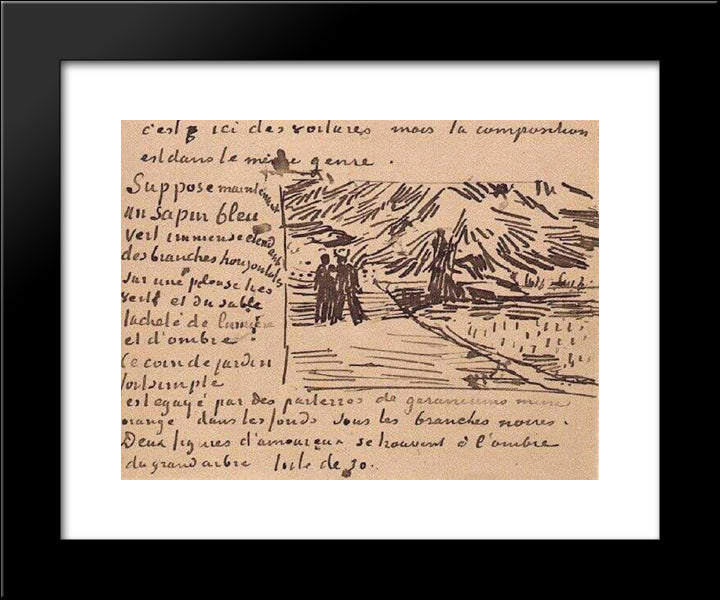 c'est ici des voitures mais la composition
est dans le même genre.
Suppose maintenant
un sapin bleu
vert immense étendant
des branches horizontales
sur une pelouse très
verte et du sable
tacheté de lumière
et d'ombre.
Ce coin de jardin
fort simple
est egayé par des parterres de geraniums mine
orange dans les fonds sous les branches noires.
Deux figures d'amoureux se trouvent à l'ombre
du grand arbre toile de 30.